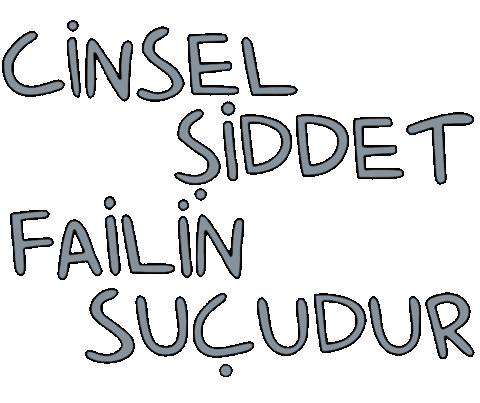 CİNSEL
ŞİDDET
FAİLİN
SUÇUDUR